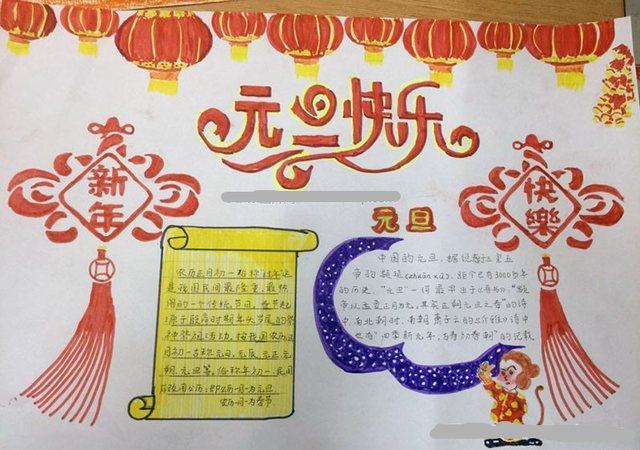 元旦快乐
新年
快樂
元旦
农历正月初一
是我国民间最隆重、最热
闹的一个传统节日。春节起
源于殷商时期年头岁尾的祭
神祭祖活动。按我国农历正
月初一古称元日、元辰、元正、元
朔、元旦等,俗称年初一,民国
改用公历:即公历一月一为元旦
农历一月一为春节
中国的元旦,据说起于三皇五
帝的颛顼(zhuān xū),距今已有3000多年
的历史。“元旦”一词最早出
帝以孟夏正月为元,其实正朔元旦之春”的诗
中。南北朝时,南朝萧子云的《介雅》诗中
也有“四季新元年,万寿初春朝”的记载